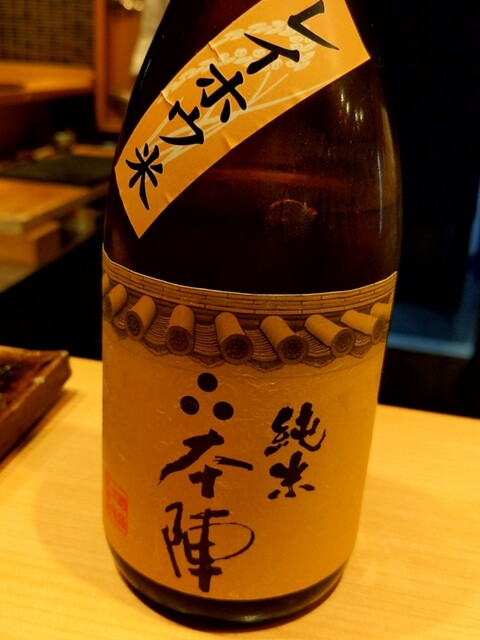 レイホウ米
純米
本陣